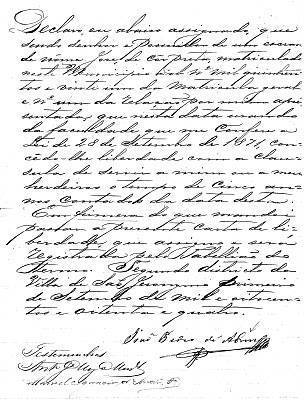 Declaro, eu abaixo assignado, que
sendo senhor e possuidor de um escravo
de nome José de côr preta, matriculado
neste Municipio sob nº mil quinhen
tos e vinte um da Matricula geral
e nº um da relação por mim apre
sentada, que nesta data usando
da faculdade que me confere a
Lei de 28 de Setembro de 1871, con
cedo-lhe liberdade com a clau
sula de servir a mim ou a meus
herdeiros o tempo de cinco an
nos contados da data desta.
E em firmeza do que mandei
passar a presente carta de li
berdade, que assigno e será
registrada pelo Tabellião do
Termo. Segundo districto da
Villa de São Jeronymo primeiro
de Setembro de mil e oitocen
tos e oitenta e quatro.
João Pedro de
Testemunhas
Manoel